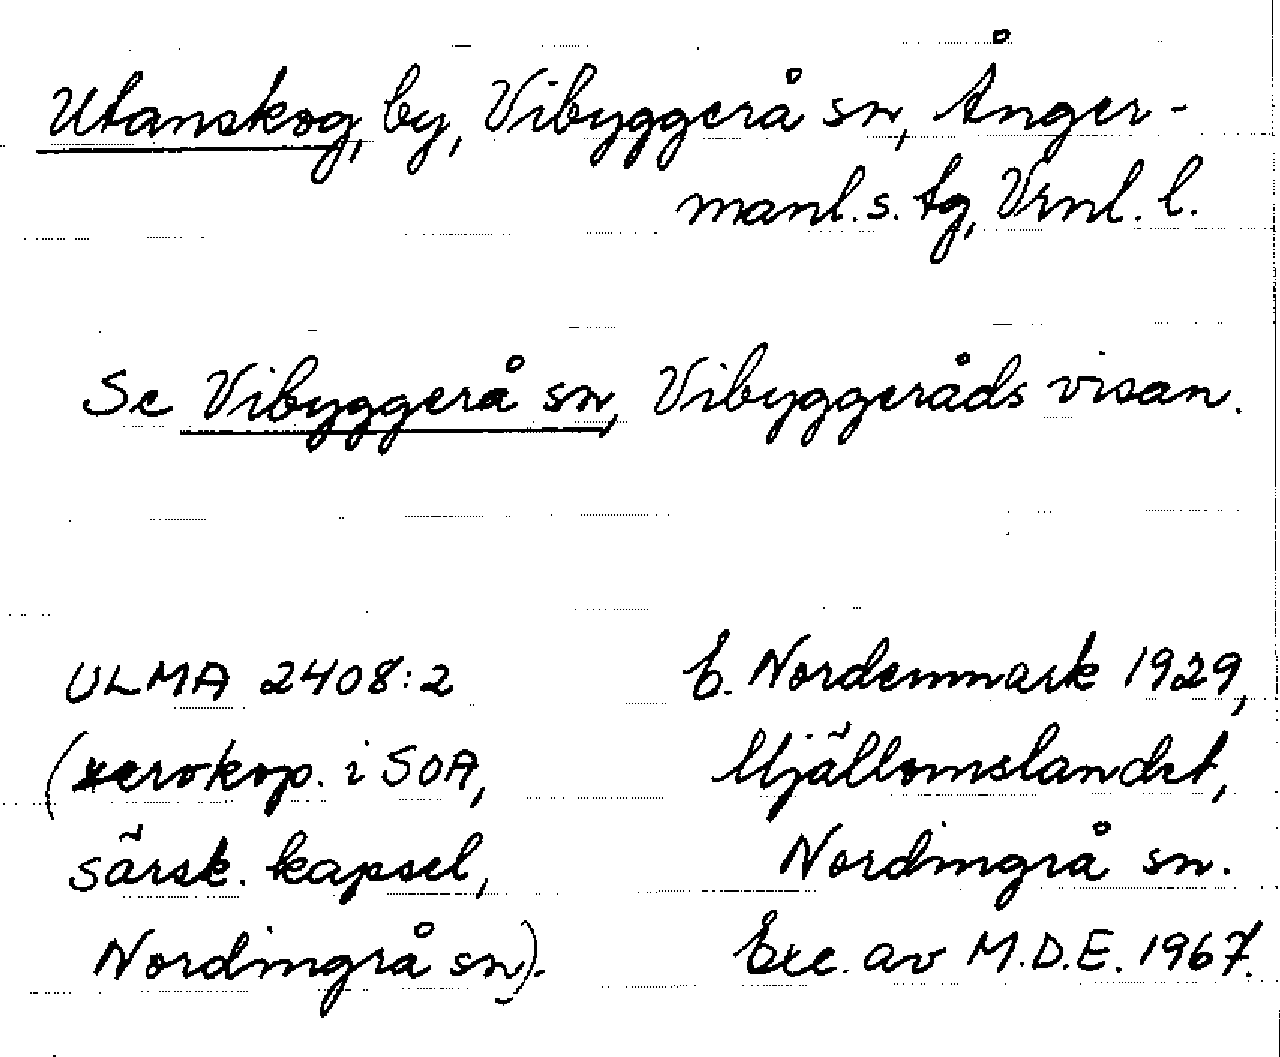 Utanskog, by, Vibyggerå sn, Ånger-
manl.s. tg, Vrnl. l.
Se Vibyggerå sn, Vibyggeråds visan.
ULMA 2408:2
(xerokop. i SOA,
särsk. kapsel,
Nordingrå sn).
E. Nordenmark 1929,
Mjällomslandet,
Nordingrå sn.
Exc. av M.D.E. 1967.